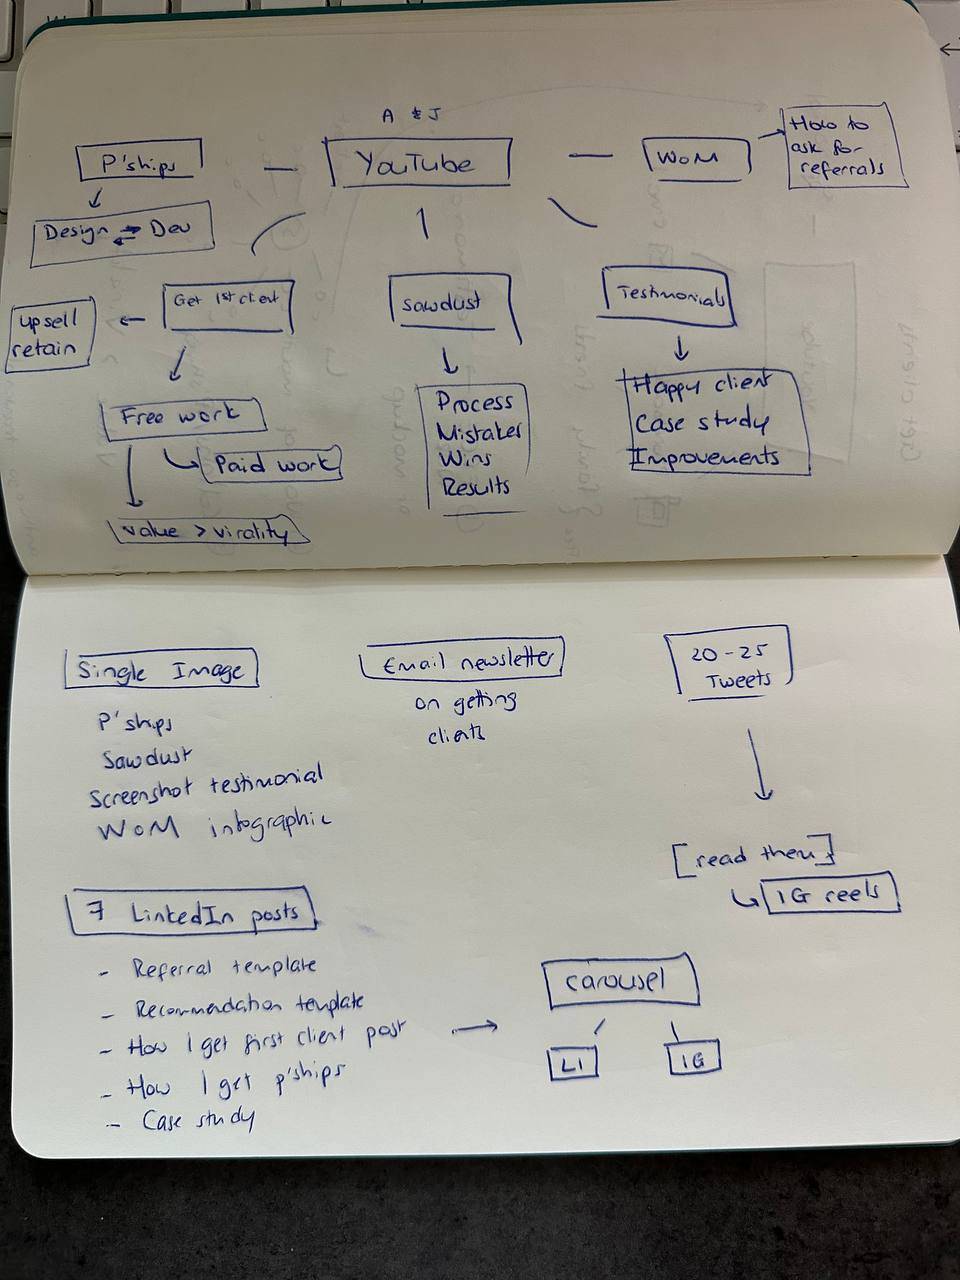 A & J
P'ships
YouTube
WOM
How to
ask for
referrals
Design ⇄ Dev
Get 1st client
Sawdust
Testimonials
upsell
retain
Free work
Paid work
value > virality
Process
Mistakes
Wins
Results
Happy client
Case study
Improvements
Single Image
P'ships
Sawdust
Screenshot testimonial
WOM infographic
Email newsletter
on getting
clients
20-25
Tweets
[read them]
IG reels
7 LinkedIn posts
- Referral template
- Recommendation template
- How I get first client post
- How I get p'ships
- Case study
Carousel
LI
IG